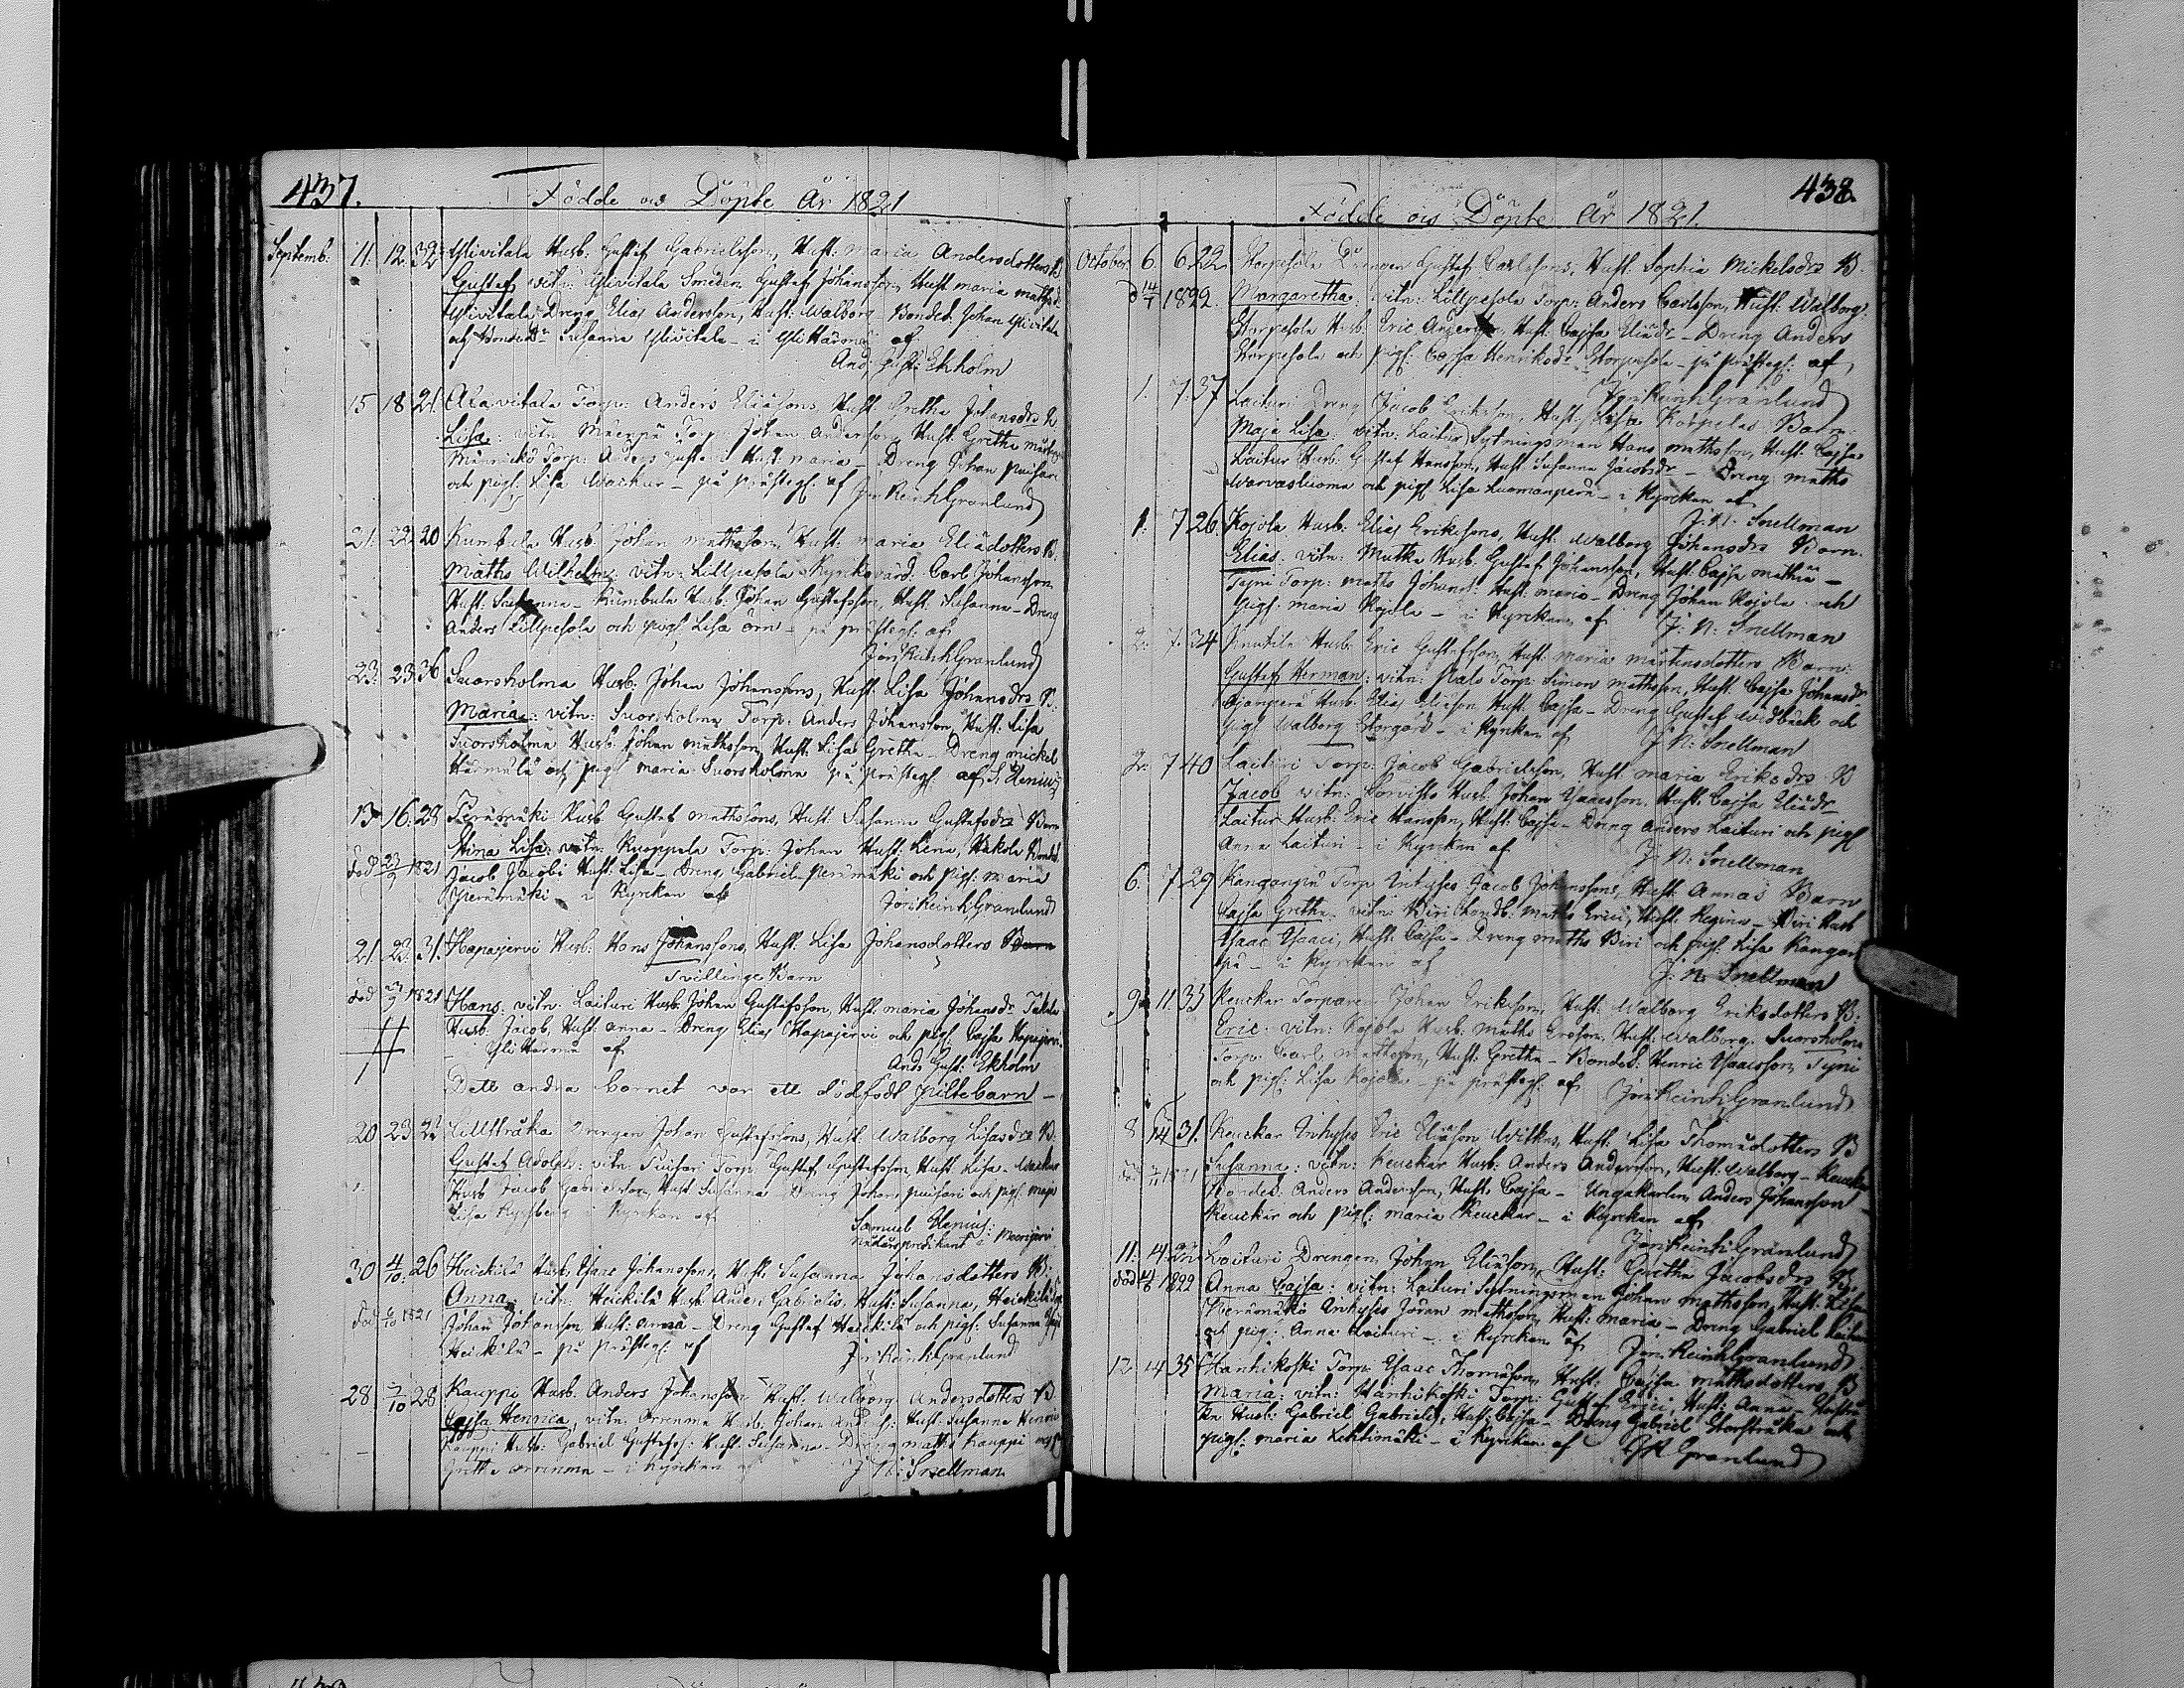 437.
Födde och Döpte År 1821
Septemb: 11. 12. 32 Ylivitala Husb: Gustaf Gabrielsson, Hust: Maria Andersdotters B
Gustaf, vitn: Ylivitala Smeden Gustaf Johansson, Hust Maria
Ylivitala Dreng Elias Andersson, Hust: Walborg Bonded. Johan Ylivitala
och Bonded:r Susanna Ylivitala - i Yli Härmä af
And: Gust: Ekholm
15 18 21. Alavitala Torp: Anders Eliäsons, Hust Gretha Johansdrs B
Lisa: vitn Torp: Johan Andersson, Hust. Greta
Torp: Anders Hust: Maria - Dreng Johan Puisari
och pig: Lisa Wachur - på Prästeg: af Jöri Reinh Granlund
21. 22. 20 Kumbula Husb: Johan Mathsson, Hust: Maria Eliädotters B.
Maths Wilhelm: vitn: Lillpesola Kyrkovärd: Carl Johansson
Hust: Susanna - Kumbula Husb: Johan Gustafsson, Hust. Susanna - Dreng
Anders Lillpesola och pig: Lisa Orn - på prästeg: af
Jöri Reinh Granlund
23. 23. 36 Suorsholma Husb: Johan Johanssons, Hust: Lisa Johansdrs B.
Maria: vitn: Suorsholma Torp: Anders Johansson Hust: Lisa
Suorsholma Husb: Johan Mathsson, Hust Lisa Gretha - Dreng Mickel
Härmälä och pig: Maria Suorsholma på prästeg: af S. Henius
13 16. 28 Perämäki Husb Gustaf Mathssons, Hust: Susanna Gustafsdrs Barn
Stina Lisa: vitn: Kuoppala Torp: Johan Hust: Lena, Hakola Bonded.
död 23/9 1821 Jacob Jacobi Hust: Lisa - Dreng Gabriel Perämäki och Pig: Maria
Perämäki i Kyrckan af Jöri Reinh Granlund
21. 23. 31. Hapajervi Husb: Hans Johanssons, Hust: Lisa Johansdotters Barn
Tvillinge Barn
död /9 1821 Hans: vitn: Laituri Husb: Johan Gustafsson, Hust: Maria Johansdr
Husb. Jacob, Hust: Anna - Dreng Elias Hapajervi och pig: Cajsa Hapajervi
Yli Härmä af And: Gust: Ekholm
Dett andra barnet var ett dödfödt piltebarn -
20 23 27 Lillstråka Drengen Johan Gustafssons, Hust. Walborg Lisasdrs B.
Gustaf Adolph: vitn: Puisari Torp: Gustaf Gustafsson Hust. Lisa - Wachur
Husb Jacob Gabrielsson, Hust Susanna - Dreng Johan Puisari och pig: Maja
Lisa Nyyberg i Kyrckan af Samuel Henius:
nådårspredikant i Meerijervi
30 4/10. 26 Heickilä Husb. Isaac Johanssons, Hust: Susanna Johansdotters B:
Anna: vitn: Heickilä Husb Anders Gabrielis, Hust: Susanna, Heickilä
död 6/10 1821 Johan Johansson Hust: Anna - Dreng Gustaf Heickilä och pig: Susanna
Heickilä - på Prästeg: af Jöri Reinh Granlund
28. 7/10 28 Kauppi Husb: Anders Johansson Hust: Walborg Andersdotters B
Cajsa Henrica, vitn: Orrenma Husb: Johan Hust: Susanna
Kauppi Husb: Gabriel Gustafss: Hust: Susanna - Dreng Maths Kauppi och
Gretha Orrenma - i Kyrckan af J: N: Snellman
438.
Födde och Döpte År 1821.
October 6. 6. 22. Storpesola Drengen Gustaf Carlssons, Hust. Sophia Mickelsdrs B.
d 14/1 1822. Margaretha: vitn: Lillpesola Torp: Anders Carlsson, Hust: Walborg:
Storpesola Husb: Eric Andersson, Hust. Cajsa Eliädr - Dreng Anders
Storpesola och pig: Cajsa Henriksdr Storpesola - på Prästeg: af
Jöri Reinh Granlund
1. 7. 37 Laituri Dreng Jacob Eriksson, Hust: Lisa Korpelas Barn
Maja Lisa vitn: Laituri Sytningsman Hans Mathsson, Hust: Cajsa
Laituri Husb: Gustaf Hansson, Hust: Susanna Jacobsdr - Dreng Maths
Warvasluoma och pig Lisa Luomanperä - i Kyrckan af
J: N: Snellman
1. 7. 26. Kojola Husb: Elias Erikssons, Hust: Walborg Johansdrs Barn
Elias: vitn: Mutka Husb: Gustaf Johansson, Hust: Cajsa -
Tyni Torp: Maths Johanss: Hust: Maria - Dreng Johan Kojola och
Pig: Maria Kojola - i Kyrckan af J: N: Snellman
2. 7. 34 Knutila Husb: Eric Gustafsson, Hust: Maria Mårtensdotters Barn:
Gustaf Herman: vitn: Torp: Simon Mathsson, Hust. Cajsa Johansdr
Ojanperä Husb: Elias Eliäson Hust: Cajsa - Dreng Gustaf Widbäck och
Pig: Walborg Storgård - i Kyrckan af J. N: Snellman
2. 7 40 Laituri Torp: Jacob Gabrielsson, Hust. Maria Eriksdrs B
Jacob vitn: Husb Johan Ysaacsson, Hust: Cajsa Eliädr
Laituri Husb: Eric Hansson, Hust: Cajsa - Dreng Anders Laituri och pig:
Anna Laituri - i Kyrckan af J: N: Snellman
6. 7. 29 Kanganpä Torp Inhyses Jacob Johanssons, Hust: Annas Barn
Cajsa Gretha vitn: Wiri Landb: Maths Erici, Hust: Regina - Wiri Husb
Ysaac Ysaaci, Hust: Cajsa - Dreng Maths Wiri och pig: Lisa Kangan
pä - i Kyrckan af J: N: Snellman
9. 11. 33 Keuckar Torparen Johan Eriksson, Hust: Walborg Eriksdotters B.
Eric: vitn: Kojola Husb: Maths Ersson, Hust: Walborg. Suorsholma
Torp: Carl Mathsson, Hust: Gretha - Bonded: Henric Ysaacsson, Tyni
och pig: Lisa Kojola - på prästeg: af Jöri Reinh Granlund
8. 14 31. Keuckar Inhyses Eric Eliäson, Hust: Lisa Thomädotters B
Susanna: vitn: Keuckar Husb: Anders Andersson, Hust: Walborg - Keuckar
Bonded: Anders Andersson, Hust: Cajsa - Ungakarlen Anders Johansson -
Keuckar och Pig: Maria Keuckar - i Kyrckan af
Jöri Reinh Granlund
11. 14. 22 Laituri Drengen Johan Eliäson, Hust: Gretha Jacobsdrs B.
död 1822 Anna Cajsa: vitn: Laituri Sytningsman Johan Mathsson, Hust: Lisa
Perämäki Inhyses Johan Mathsson, Hust: Maria - Dreng Gabriel Laituri
och pig: Anna Laituri - i Kyrckan af Jöri Reinh Granlund
12. 14 35 Hanhikoski Torp: Ysaac Thomäson, Hust: Cajsa Mathsdotters B
Maria: vitn: Hanhikoski Torp: Gustaf Erici, Hust: Anna -
Husb: Gabriel Gabriels, Hust: Cajsa - Dreng Gabriel Storstråka och
pig: Maria Lehtimäki - i Kyrckan af JR Granlund